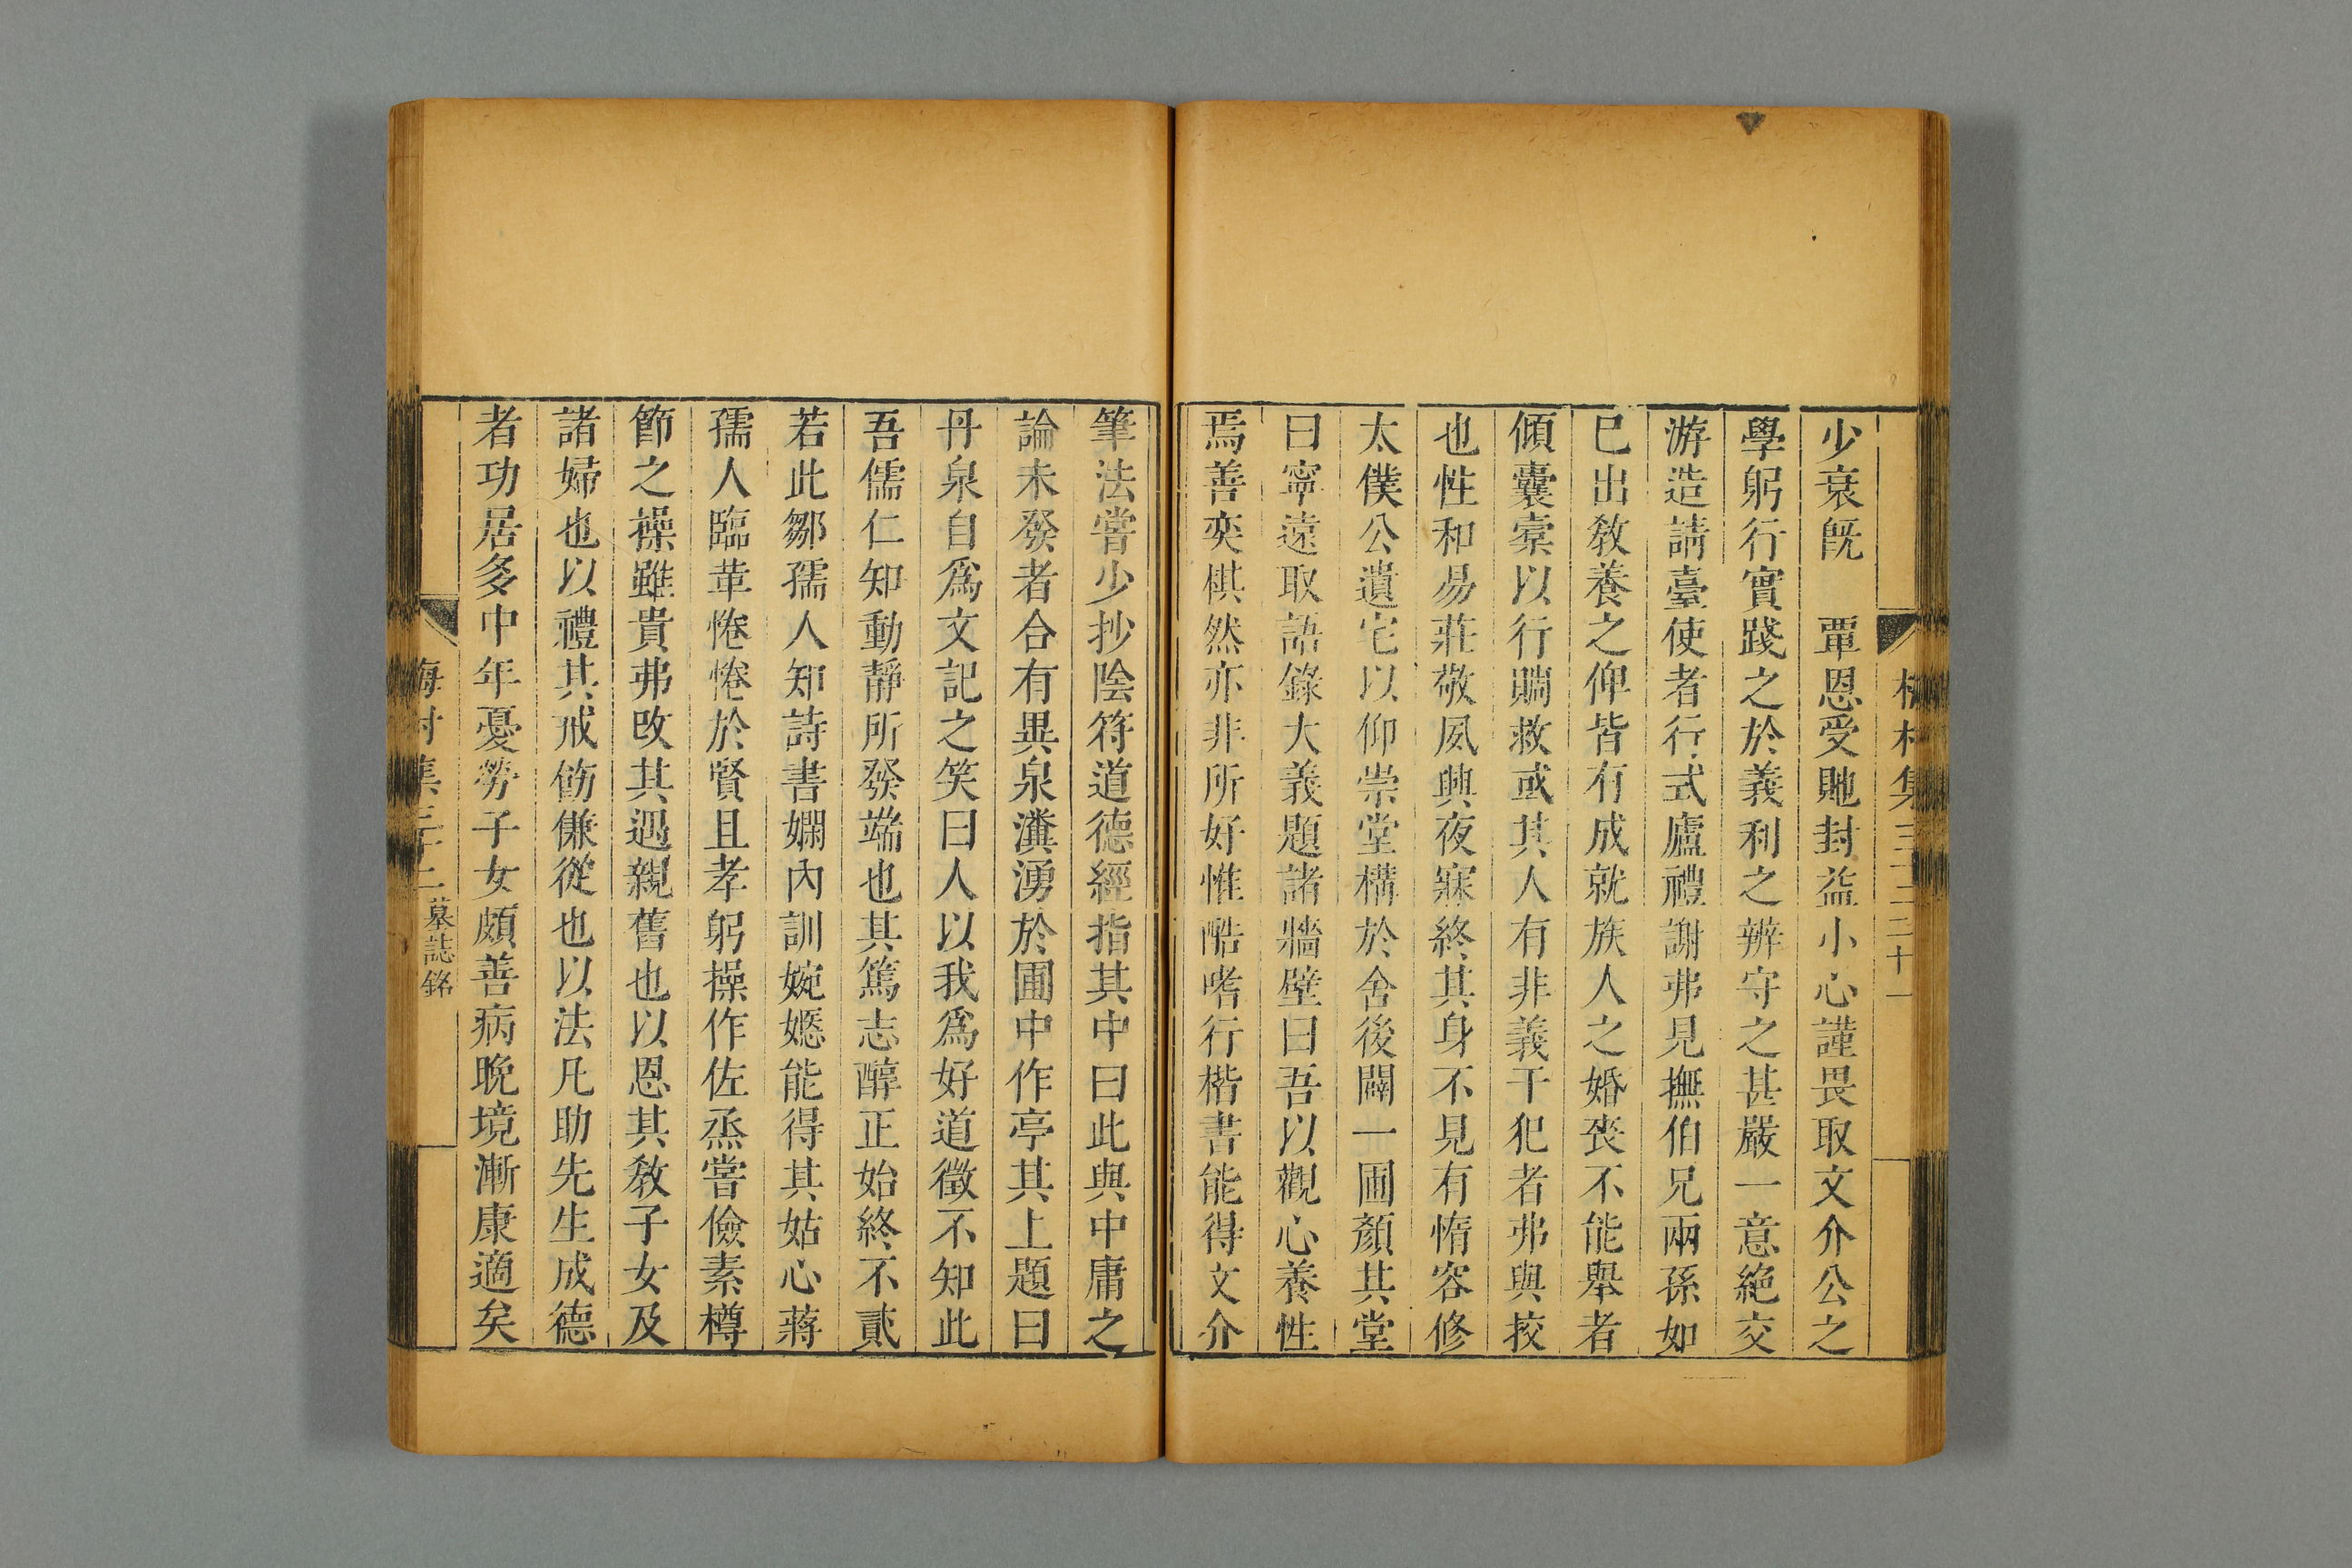 少衰旣　覃恩受貤封益小心謹畏取文介公之
學躬行實踐之於義利之辨守之甚嚴一意絶交
游造請臺使者行式廬禮謝弗見撫伯兄兩孫如
已出教養之俾皆有成就族人之婚喪不能舉者
傾囊橐以行賙救或其人有非義干犯者弗與挍
也性和易莊敬夙興夜寐終其身不見有惰容修
太僕公遺宅以仰崇堂構於舍後闢一圃顏其堂
曰寧遠取語錄大義題諸牆壁曰吾以觀心養性
焉善奕棋然亦非所好惟酷嗜行楷書能得文介
筆法嘗少抄陰符道德經指其中曰此與中庸之
論未發者合有異泉瀵湧於圃中作亭其上題曰
丹泉自爲文記之笑曰人以我爲好道徵不知此
吾儒仁知動靜所發端也其篤志醇正始終不貳
若此鄒孺人知詩書嫻內訓婉嫕能得其姑心蔣
孺人臨葷惓惓於賢且孝躬操作佐烝嘗儉素樽
節之操雖貴弗改其遇親舊也以恩其教子女及
諸婦也以禮其戒飭傔從也以法凡助先生成德
者功居多中年憂勞子女頗善病晚境漸康適矣
墓誌銘